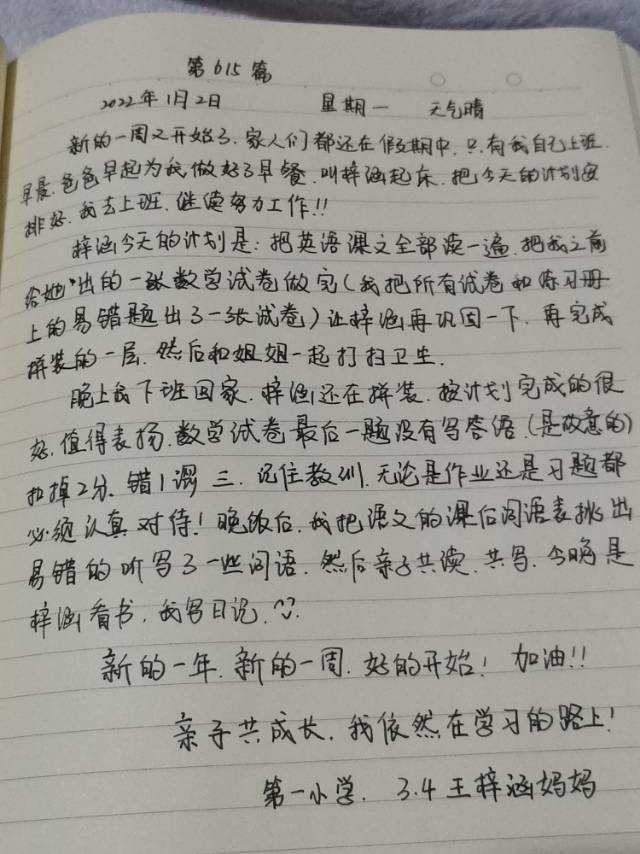 第615篇
2022年1月2日 星期一 天气晴
新的一周又开始了，家人们都还在假期中，只有我自己上班，
早晨，爸爸早起为我做好了早餐，叫梓涵起床，把今天的计划安
排好，我去上班，继续努力工作!!
梓涵今天的计划是：把英语课文全部读一遍，把我之前
给她出的一张数学试卷做完（我把所有试卷和练习册
上的易错题出了一张试卷）让梓涵再巩固一下，再完成
拼装的一层，然后和姐姐一起打扫卫生．
晚上我下班回家，梓涵还在拼装，按计划完成的很
好，值得表扬，数学试卷最后一题没有写答语，（是故意的）
扣掉2分，错1罚三，记住教训，无论是作业还是习题都
必须认真对待！晚饭后，我把语文的课后词语表挑出
易错的听写了一些词语，然后亲子共读，共写，今晚是
梓涵看书，我写日记．
新的一年，新的一周，好的开始！加油!!
亲子共成长，我依然在学习的路上！
第一小学，3.4王梓涵妈妈